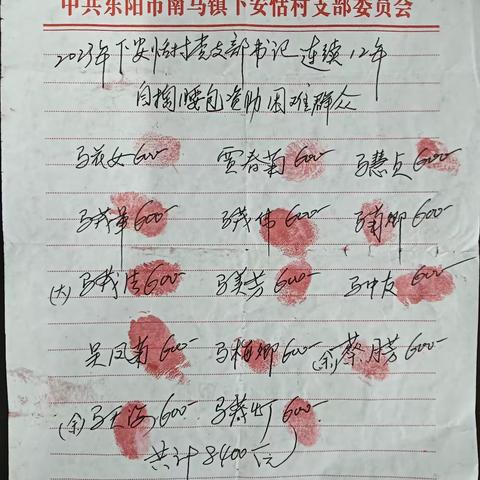 中共东阳市南马镇下安恬村支部委员会
2023年下安恬村党支部书记连续12年
自掏腰包资助困难群众
马菽女600 贾春菊600 马慧贞600
马茂华600 马茂伟600 马菊卿600
(大)马茂法600 马美芳600 马中友600
吴凤菊600 马梅卿600 (余)蔡月芳600
(余)马天海600 马蔡灯600
共计8400元